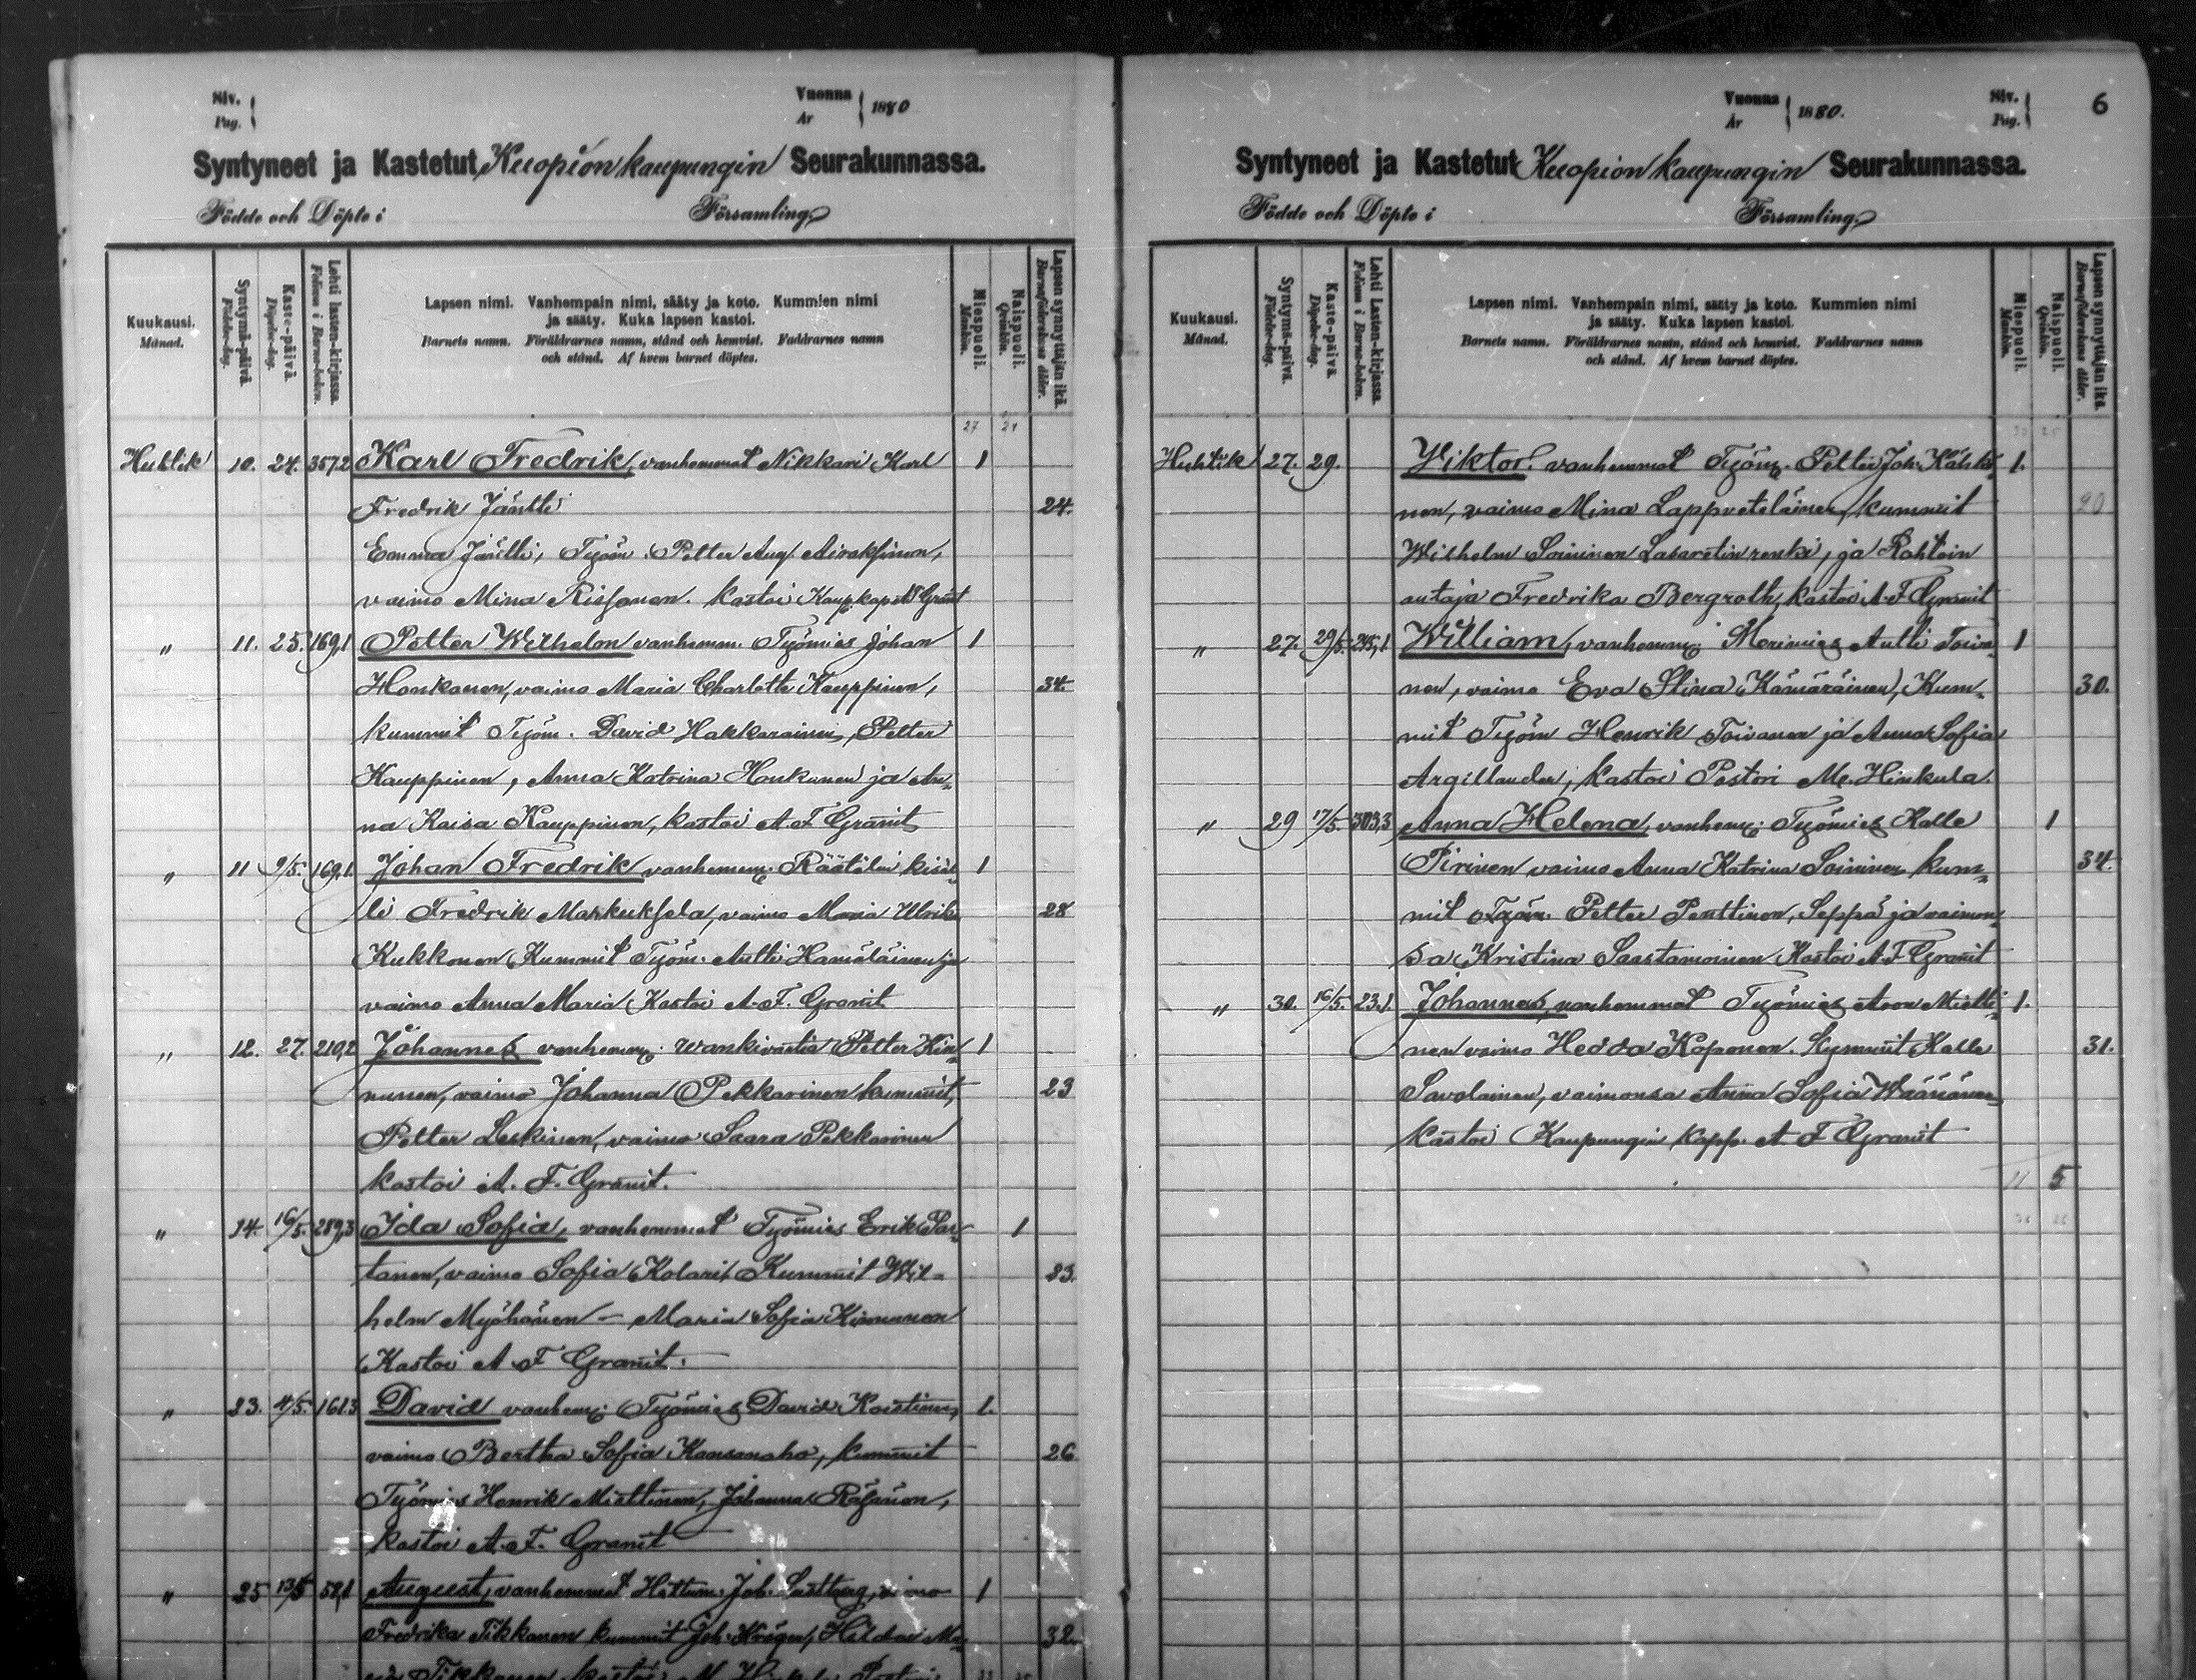 Siv.
Pag.
Vuonna
År
1880
Syntyneet ja Kastetut Kuopion kaupungin Seurakunnassa.
Födde och Döpte i Församling.
Kuukausi.
Månad.
Syntymä-päivä.
Födelse-dag.
Kaste-päivä.
Döpelse-dag.
Lehti lasten-kirjassa.
Folium i Barna-boken.
Lapsen nimi. Vanhempain nimi, sääty ja koto. Kummien nimi
ja sääty. Kuka lapsen kastoi.
Barnets namn. Föräldrarnes namn, stånd och hemvist. Faddrarnes namn
och stånd. Af hvem barnet döptes.
Miespuoli.
Mankön.
Naispuoli.
Qvinkön.
Lapsen synnyttäjän ikä.
Barnaföderskans ålder.
27
Huhtik 10. 24. 357,2 Karl Fredrik, vanhemmat Nikkari Karl 1
Fredrik Jäntti 24.
Emma Jäntti, Työm Petter Aug. Airaksinen,
vaimo Mina Rissanen. Kastoi Kaup. kap. Granit
" 11. 25. 169,1 Petter Wilhelm vanhemm. Työmies Johan 1
Honkanen, vaimo Maria Charlotta Kauppinen, 34.
kummit Työm. David Hakkarainen, Petter
Kauppinen, Anna Katrina Honkanen ja An-
na Kaisa Kauppinen, kastoi A. F. Granit
" 11 9/5. 169,1. Johan Fredrik vanhemm. Räätälin kisäl- 1
li Fredrik Markuksela, vaimo Maria Ulrika 28
Kukkonen Kummit Työm. Antti Hämäläinen ja
vaimo Anna Maria Kastoi A. F. Granit
" 12. 27. 210,2 Johannes vanhemm. Wankivartia Petter Kin- 1
nunen, vaimo Johanna Pekkarinen kummit, 23
Petter Leskinen, vaimo Saara Pekkarinen
kastoi A. F. Granit.
" 14. 16/5. 289,3 Ida Sofia, vanhemmat Työmies Erik Par- 1
tanen, vaimo Sofia Kolari, Kummit Wil- 23.
helm Myöhänen - Maria Sofia Kinnunen
Kastoi A. F. Granit.
" 23. 4/5. 161,3 David vanhem. Työmies David Koistinen, 1.
vaimo Bertha Sofia Kansanaho, kummit 26
Työmies Henrik Miettinen, Johanna Räsänen,
kastoi A. F. Granit
" 25 13/5 58,1 August, vanhemmat Joh. vaimo 1
Fredrika Tikkanen kummit Joh. Kröger, Hilda Ma- 32.
ria Tikkanen kastoi M. Hinkula Pastori
Vuonna
År
1880.
Siv.
Pag.
6
Syntyneet ja Kastetut Kuopion kaupungin Seurakunnassa.
Födde och Döpte i Församling.
Kuukausi.
Månad.
Syntymä-päivä.
Födelse-dag.
Kaste-päivä.
Döpelse-dag.
Lehti Lasten-kirjassa.
Folium i Barna-boken.
Lapsen nimi. Vanhempain nimi, sääty ja koto. Kummien nimi
ja sääty. Kuka lapsen kastoi.
Barnets namn. Föräldrarnes namn, stånd och hemvist. Faddrarnes namn
och stånd. Af hvem barnet döptes.
Miespuoli.
Mankön.
Naispuoli.
Qvinkön.
Lapsen synnyttäjän ikä.
Barnaföderskans ålder.
Huhtik 27. 29. Wiktor. vanhemmat Työm. Petter Joh. Kähkö- 1.
nen, vaimo Mina Lappveteläinen, kummit 20
Wilhelm Soininen Lasaretin renki, ja
autaja Fredrika Bergroth, kastoi A. F. Granit
" 27. 29/5. 245,1 William, vanhemm. Merimies Antti Toiva- 1
nen, vaimo Eva Stina Kämäräinen, Kum- 30.
mit Työm Henrik Toivanen ja Anna Sofia
Argillander, kastoi Pastori M. Hinkula.
" 29 17/5. 303,3 Anna Helena, vanhem. Työmies Kalle 1
Pirinen vaimo Anna Katrina Soininen kum- 34.
mit Työm. Petter Penttinen, Seppä ja vaimon-
sa Kristina Saastamoinen Kastoi A. F. Granit
" 30. 16/5. 23,1. Johannes, vanhemmat Työmies Aron Mietti- 1.
nen vaimo Hedda Koponen. Kummit Kalle 31.
Savolainen, vaimonsa Anna Sofia Wäänänen
kastoi Kaupungin Kapp. A F Granit
11 5